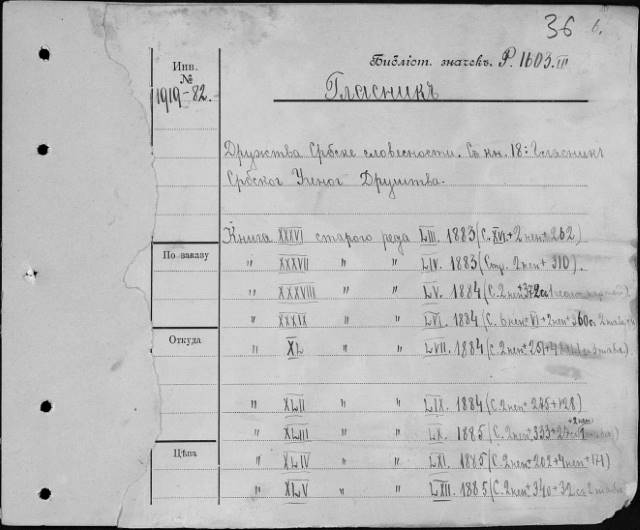 36 б.
Библіот. значекъ. Р. 1603. III
Инв.
№
1919-82.
Гласникъ
Дружства Србске словесности. Съ кн. 18: Гласник
Србског Ученог Друштва.
Книга XXXVI старого реда LIII. 1883 (С. XVI + 2 нен + 262)
По заказу
" XXXVII " " LIV. 1883 (Стр. 2 нен + 310).
" XXXVIII " " LV. 1884 (С. 2 нен + 372 съ
" XXXIX " " LVI. 1884 (С. 6 нен + VI + 2 нен + 360 съ 2
Откуда
" XL " " LVII. 1884 (С. 2 нен + 251 +
" XLII " " LIX. 1884 (С. 2 нен + 245 + 128)
" XLIII " " LX. 1885 (С. 2 нен + 333 +
" XLIV " " LXI. 1885 (С. 2 нен + 202 + 4 нен + 171)
Цѣна
" XLV " " LXII. 1885 (С. 2 нен + 340 + 32 съ 2